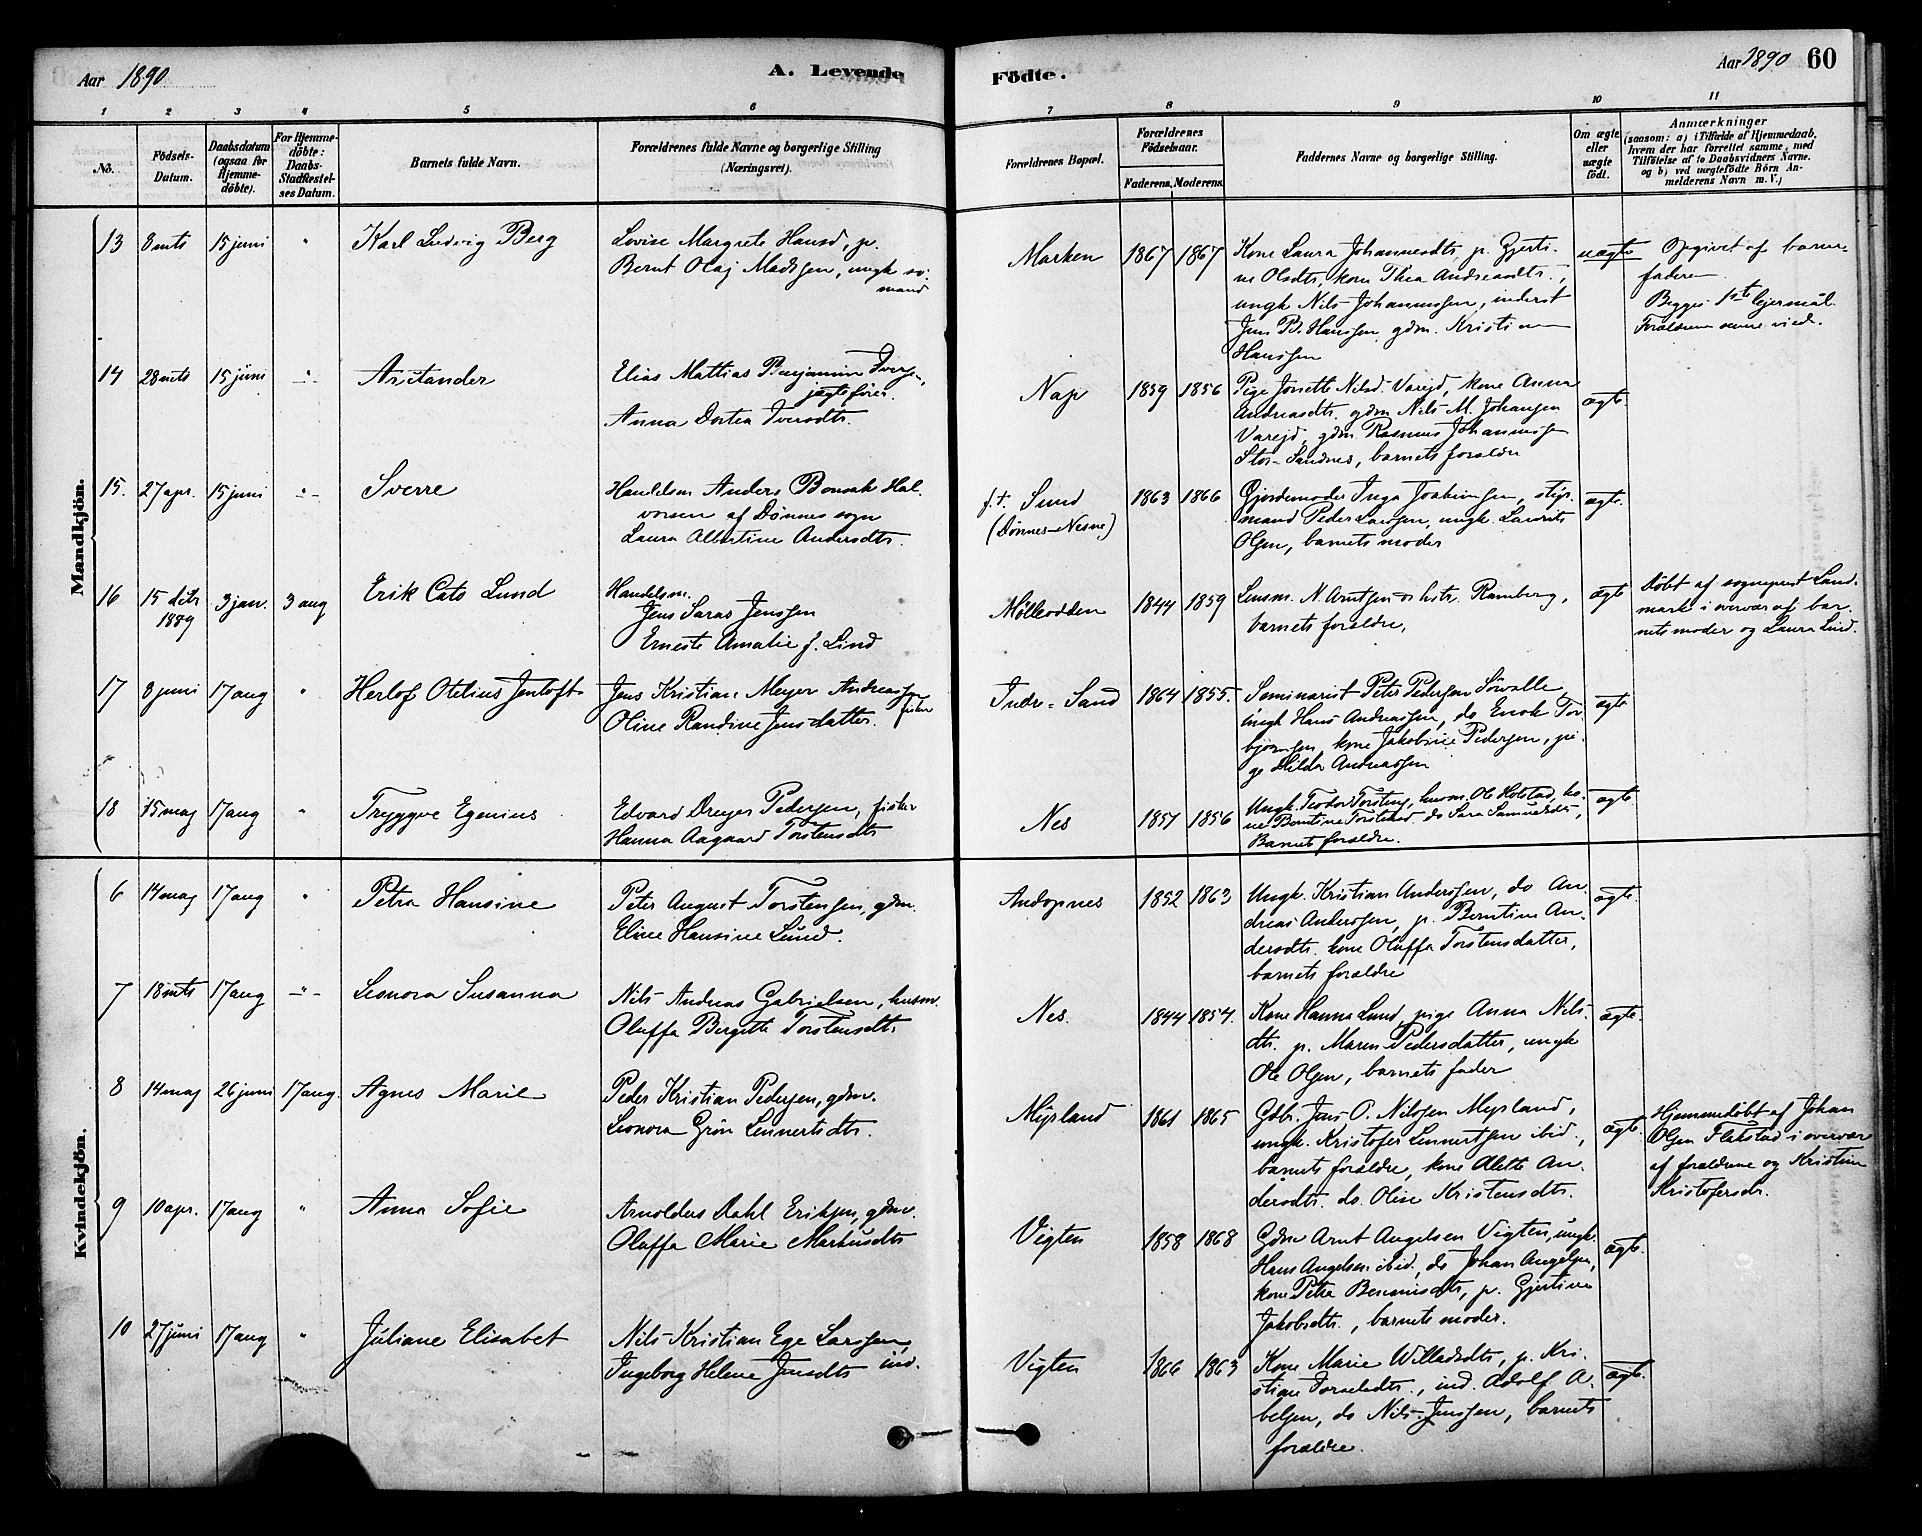 Aar 1890
A. Levende
Födte.
Aar 1890 60
1 2 3 4 5 6 7 8 9 10 11
No.
Födsels-
Datum.
Daabsdatum
(ogsaa for
Hjemme-
döbte).
For Hjemme-
döbte:
Daabs-
Stadfæstel-
ses Datum.
Barnets fulde Navn.
Forældrenes fulde Navne og borgerlige Stilling
(Næringsvei).
Forældrenes Bopæl.
Forældrenes
Födselsaar.
Faderens. Moderens.
Faddernes Navne og borgerlige Stilling.
Om ægte
eller
uægte
födt.
Anmærkninger
(saasom: a) i Tilfælde af Hjemmedaab,
hvem der har forrettet samme, med
Tilföielse af to Daabsvidners Navne.
og b) ved uægtefödte Börn An-
melderens Navn m. V.)
Mandkjön.
13 8 mts 15 juni " Karl Ludvig Berg
Lovise Margrete Hansd, p.
Bernt Olaj Madsen, ungk sö-
mand
Marken 1867 1867
Kone Laura Johannesdtr. p. Gjerti-
ne Olsdtr, kone Thea Andreasdtr.,
ungk Nils Johannessen, inderst
Jens B. Hanssen, gdm. Kristian
Hanssen
uægte
Opgivet af barne-
faderen
Begges 1ste lejermål
Forældrene senere viede.
14 28 mts 15 juni " Aristander
Elias Mattias Benjamin Iversen,
jægtefører.
Anna Dortea Iversdtr.
Nap 1859 1856
Pige Jorsette Nilsd. Vareid, kone Anna
Andreasdtr. gdm Nils M. Johansen
Vareid, gdm. Rasmus Johannessen
Stor-Sandnes, barnets forældre
ægte.
15. 27 apr. 15 juni " Sverre
Handelsm Anders Bonsak Hal-
vorsen af Dønnes sogn
Laura Albertine Andersdtr.
f.t. Sund
(Dønnes-Nesne)
1863 1866
Gjordemoder Inga Joakimsen, styr-
mand Peder Larssen, ungk. Laurits
Olsen, barnets moder
ægte.
16 15 dcbr
1889
3 jan. 3 aug Erik Cato Lund
Handelsm.
Jens Saras Jenssen
Erneste Amalie f. Lind
Mølleodden 1844 1859
Lensm. N. Arntsen og hstr. Ramberg,
barnets forældre,
ægte
Døbt af sogneprest Land-
mark i overvær af bar-
nets moder og Laura Lind.
17 8 juni 17 aug " Herlof Otelius Jentoft
Jens Kristian Meyer Andreassen
fisker
Oline Randine Jensdatter.
Indre-Sand 1864 1855.
Seminarist Peter Pedersen Sørvalle,
ungk Hans Andreassen, do Enok Tor-
bjørnsen, kone Jakobine Pedersen, pi-
ge Hilda Andreassen
ægte
18 15 maj 17 aug " Tryggve Egenius
Edvard Dreyer Pedersen, fisker
Hanna Aagaard Torstensdtr
Nes 1857 1856
Ungk. Teodor Torsting, husm. Ole Holstad, ko-
ne Berntine Torstensd do Sara Samuelsdtr,
Barnets forældre.
ægte
Kvindekjön.
6 14 maj 17 aug " Petra Hansine
Peter August Torstensen, gdm.
Eline Hansine Lund.
Andopnes 1852 1863
Ungk. Kristian Anderssen, do An-
dreas Anderssen, p. Berntine An-
dersdtr. kone Oluffa Torstensdatter,
barnets forældre
ægte.
7 18 mts 17 aug " Leonora Susanna
Nils Andreas Gabrielsen, husm.
Oluffa Bergitte Torstensdtr.
Nes. 1844 1854.
Kone Hanna Lund, pige Anna Nils-
dtr. p. Maren Pedersdatter, ungk
Ole Olsen, barnets fader
ægte.
8 14 maj 26 juni 17 aug. Agnes Marie
Peder Kristian Pedersen, gdm.
Leonora Grön Lennertsdtr.
Mjsland 1861 1865
Gdbr. Jens O. Nilssen Mejsland,
ungk. Kristofer Lennertsen ibid.,
barnets forældre, kone Alette An-
dersdtr. do. Oline Kristensdtr.
ægte.
Hjemmedøbt af Johan
Olsen Flakstad i overvær
af forældrene og Kristine
Kristofersdr.
9 10 apr. 17 aug " Anna Sofie
Arnoldus Dahl Eriksen, gdm.
Oluffa Marie Markusdtr
Vigten 1858 1868
Gdm Arnt Angelsen Vigten, ungk.
Hans Angelsen ibid., do Johan Angelsen,
kone Petra Benonisdtr, p. Gjertine
Jakobsdtr., barnets moder.
ægte.
10 27 juni 17 aug " Juliane Elisabet
Nils Kristian Ege Larssen,
ind.
Ingeborg Helene Jensdtr
Vigten 1866 1863
Kone Marie Willadsdtr, p. Kri-
stine Torsteindtr., ind. Adolf A-
belsen, do Nils Jenssen, barnets
forældre.
ægte.